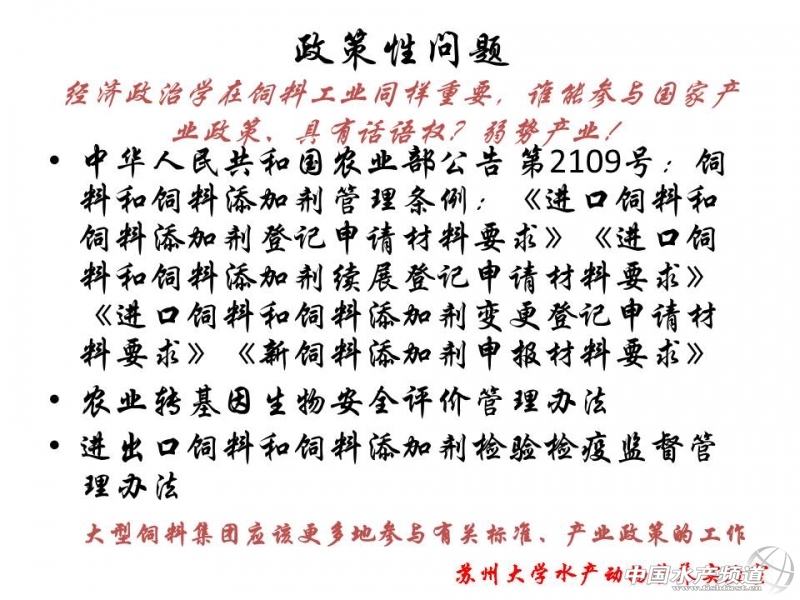 政策性问题
经济政治学在饲料工业同样重要，谁能参与国家产
业政策、具有话语权？弱势产业！
• 中华人民共和国农业部公告 第2109号；饲
料和饲料添加剂管理条例；《进口饲料和
饲料添加剂登记申请材料要求》《进口饲
料和饲料添加剂续展登记申请材料要求》
《进口饲料和饲料添加剂变更登记申请材
料要求》《新饲料添加剂申报材料要求》
• 农业转基因生物安全评价管理办法
• 进出口饲料和饲料添加剂检验检疫监督管
理办法
大型饲料集团应该更多地参与有关标准、产业政策的工作
苏州大学水产动物
中国水产频道
www.fishfirst.cn